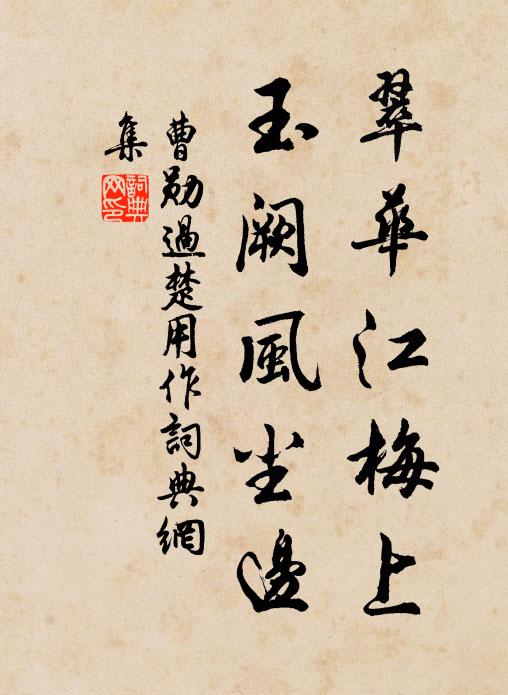 翠華江梅上
玉闕風塵邊
曹勛過楚用作詞典網
集
詞典
网印